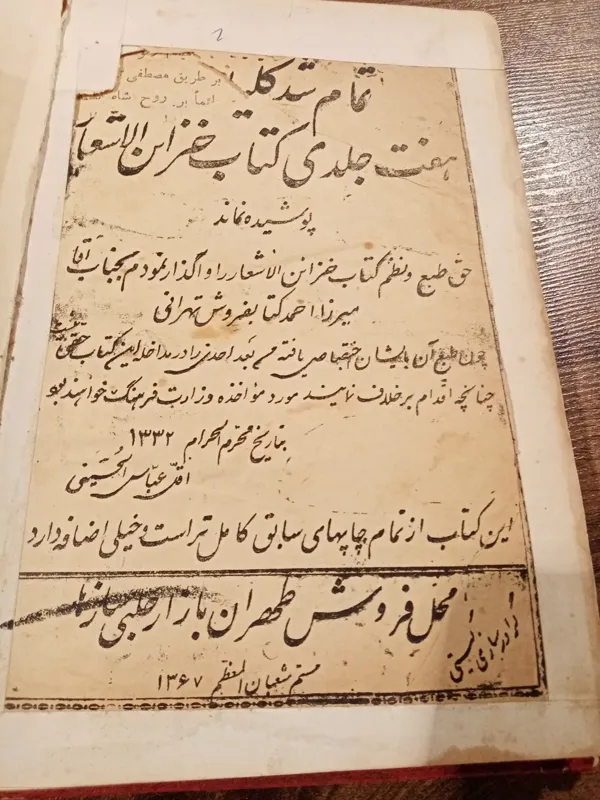 2
بر طریق مصطفی
ائماً بر روح شاه
تمام شد
هفت جلدی کتاب خزائن الاشعار
پوشیده نماند
حق طبع و نظم کتاب خزائن الاشعار را واگذار نمودم بجناب آقا
میرزا احمد کتابفروش تهرانی
چون طبع آن بایشان اختصاص یافته من بعد احدی را در مداخله این کتاب حقی
چنانچه اقدام بر خلاف نمایند مورد مؤاخذه وزارت فرهنگ خواهند بود
بتاریخ محرم الحرام ۱۳۳۲
اقل عباس الحسینی
این کتاب از تمام چاپهای سابق کامل تر است و خیلی اضافه دارد
محل فروش طهران بازار حلبی سازها
ستم شعبان المعظم ۱۳۶۷